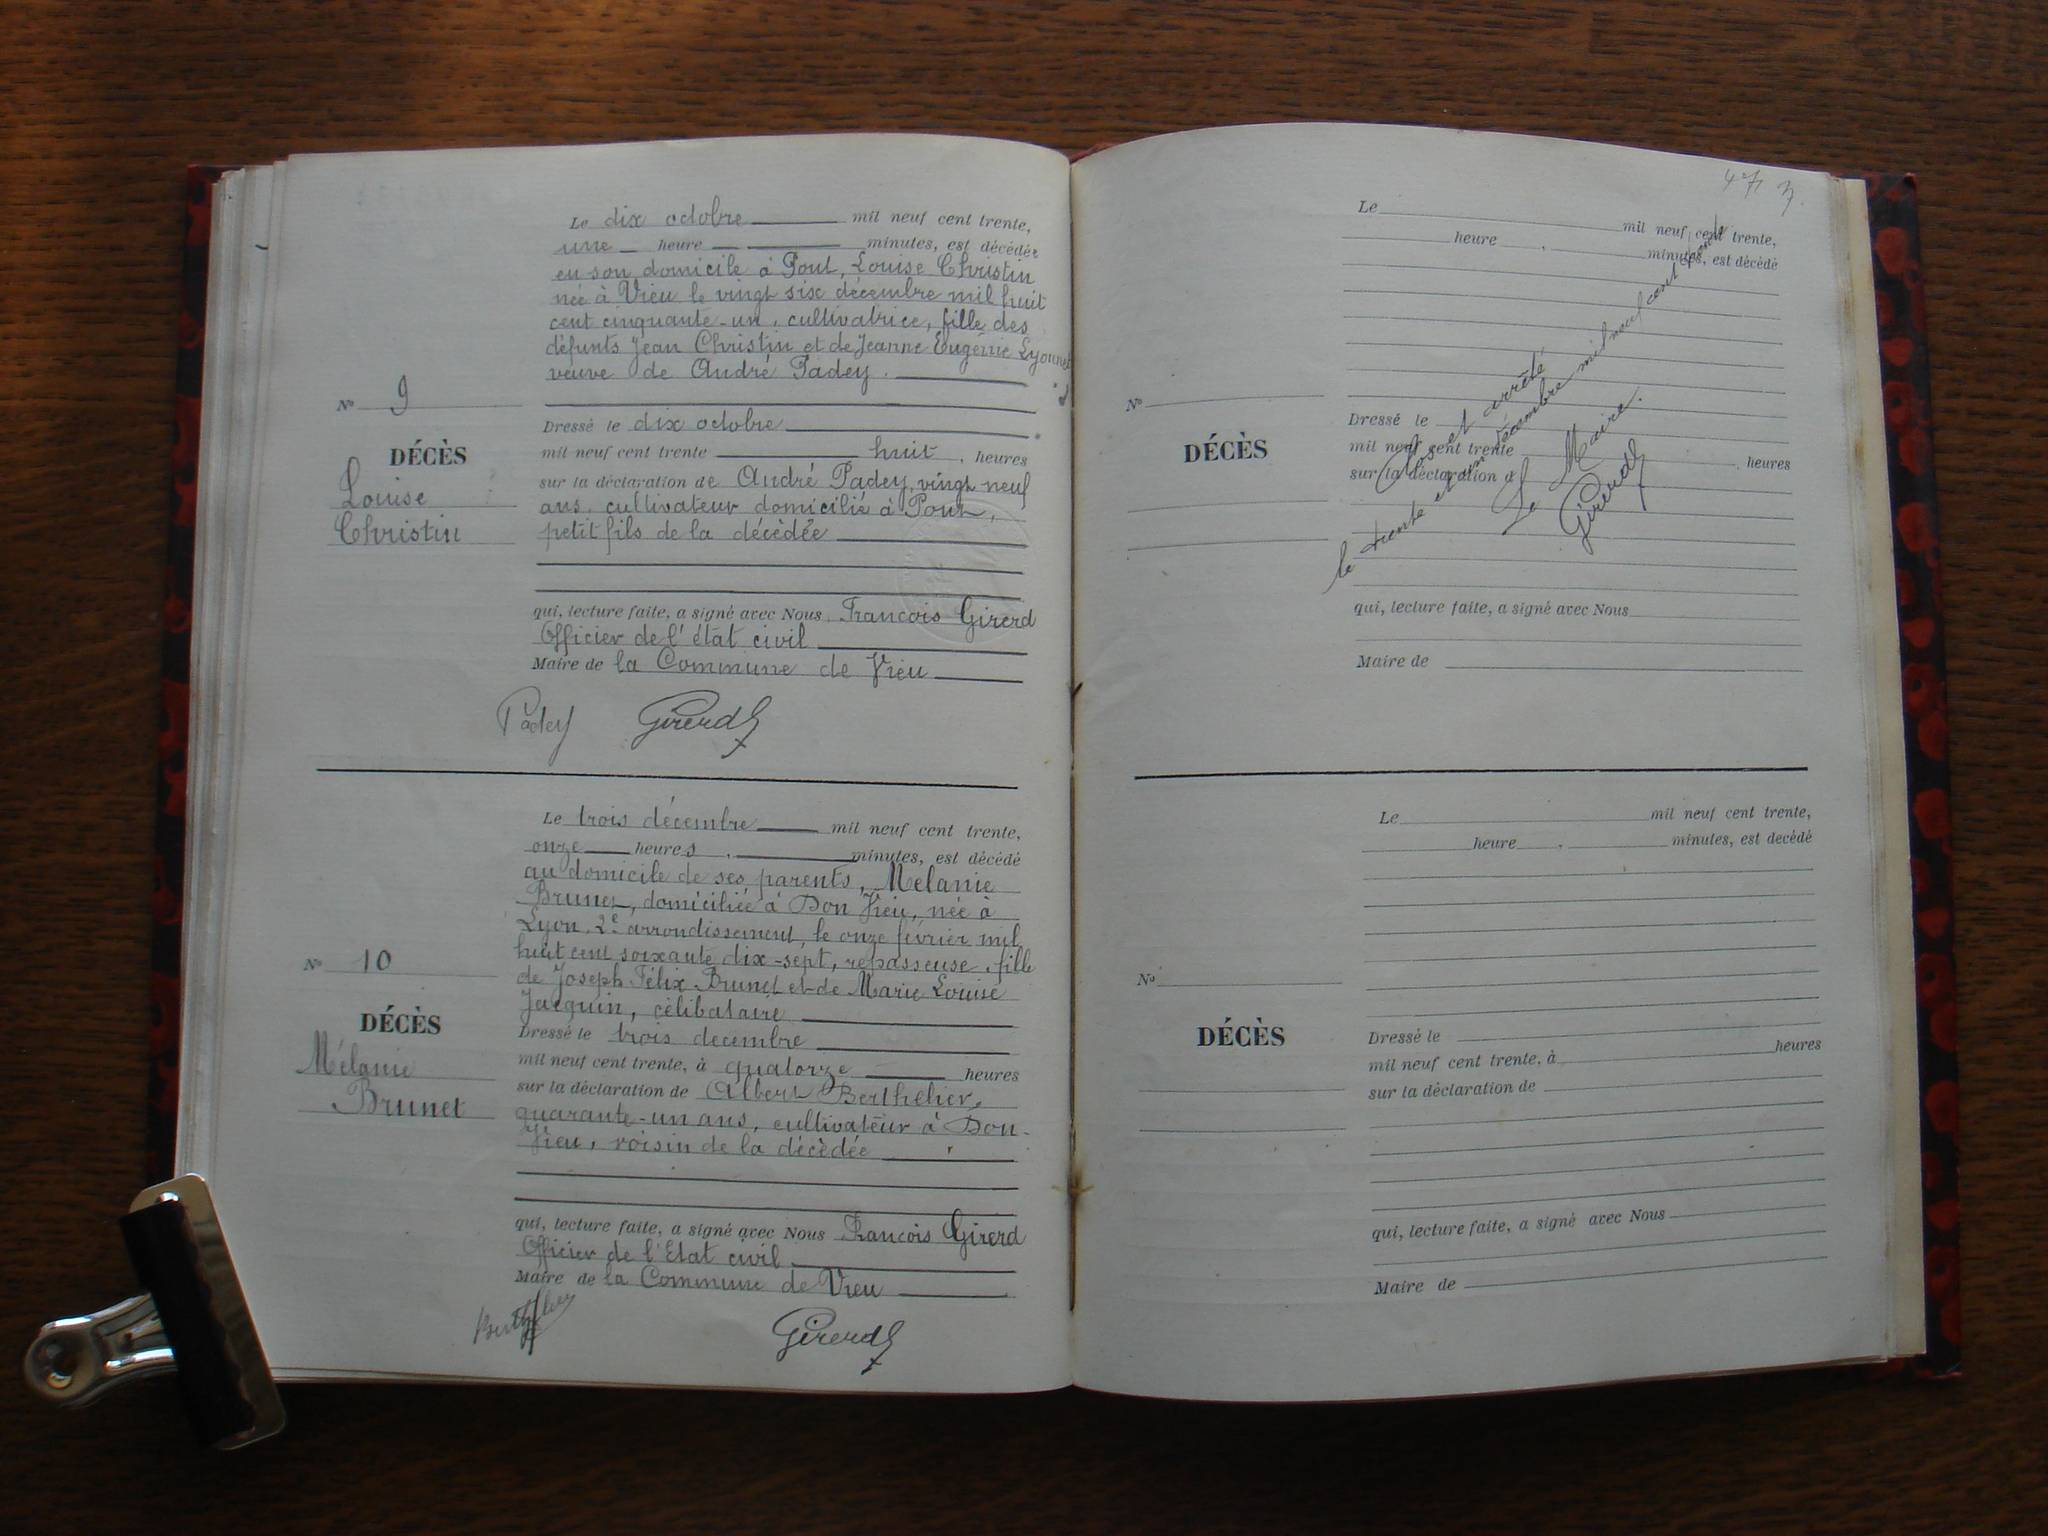 Le dix octobre mil neuf cent trente,
une heure minutes, est décédée
en son domicile à Pont, Louise Christin
née à Vieu le vingt six décembre mil huit
cent cinquante-un, cultivatrice, fille des
défunts Jean Christin et de Jeanne Eugénie Lyonnet
veuve de André Padey.
N° 9
DÉCÈS
Louise
Christin
Dressé le dix octobre
mil neuf cent trente huit heures
sur la déclaration de André Padey, vingt neuf
ans, cultivateur domicilié à Pont,
petit fils de la décèdée
qui, lecture faite, a signé avec Nous François Girerd
Officier de l'état civil
Maire de la Commune de Vieu
Padey Girerd
Le trois décembre mil neuf cent trente,
onze heures, minutes, est décédé
au domicile de ses parents, Mélanie
Brunet, domiciliée à Don Vieu, née à
Lyon, 2e arrondissement, le onze février mil
huit cent soixante dix-sept, repasseuse, fille
de Joseph Félix Brunet et de Marie Louise
Jacquin, célibataire
N° 10
DÉCÈS
Mélanie
Brunet
Dressé le trois decembre
mil neuf cent trente, à quatorze heures
sur la déclaration de Albert Berthelier,
quarante-un ans, cultivateur à Don-
Vieu, voisin de la décèdée
qui, lecture faite, a signé avec Nous François Girerd
Officier de l'Etat civil
Maire de la Commune de Vieu
Berthelier Girerd
47
Le mil neuf cent trente,
heure, minutes, est décédé
N°
DÉCÈS
Dressé le
mil neuf cent trente heures
sur la déclaration d
Clos et arrêté
le trente et un décembre mil neuf cent trente
Le Maire.
Girerd
qui, lecture faite, a signé avec Nous
Maire de
Le mil neuf cent trente,
heure, minutes, est decédé
N°
DÉCÈS
Dressé le
mil neuf cent trente, à heures
sur la déclaration de
qui, lecture faite, a signé avec Nous
Maire de